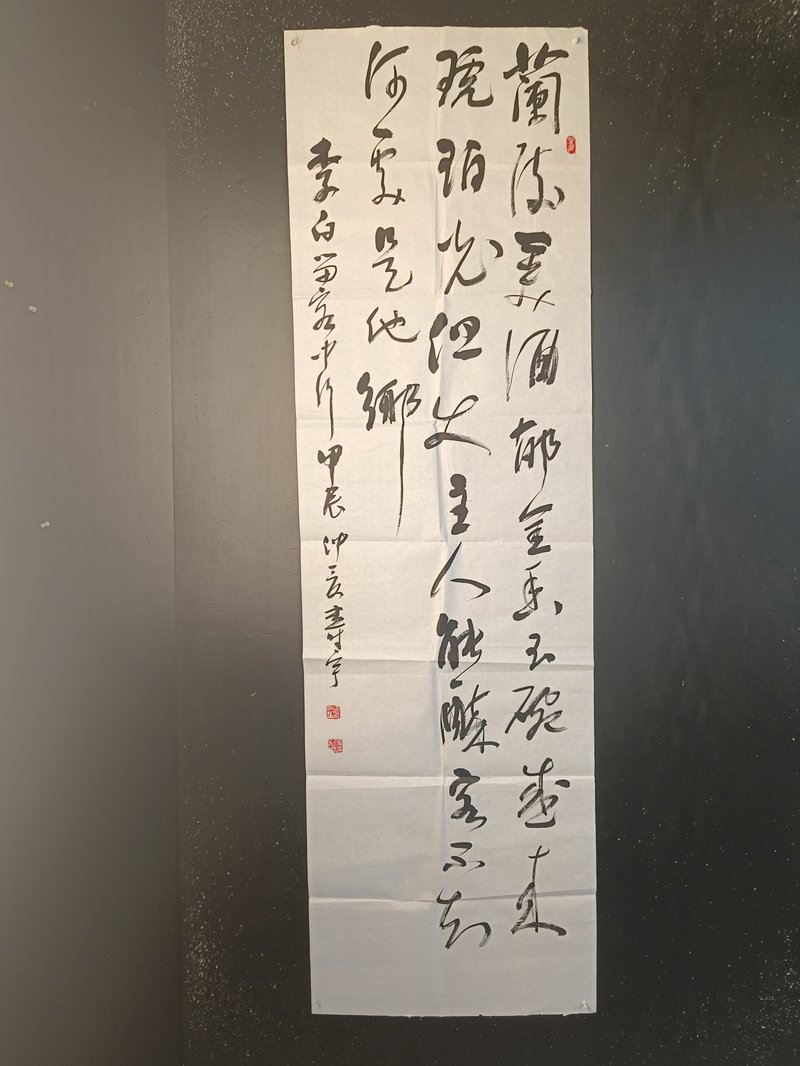 蘭陵美酒郁金香玉碗盛来
琥珀光但使主人能醉客不知
何處是他鄉
李白留客中行甲辰仲夏